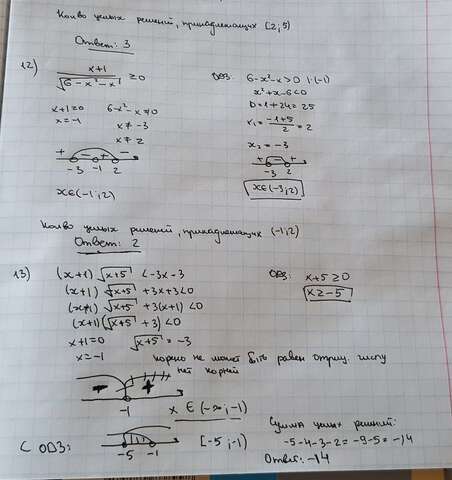 Кол-во целых решений, принадлежащих [2;5)
Ответ: 3
12) x+1 / √(6-x²-x) ≥ 0
ОДЗ: 6-x²-x>0 |·(-1)
x²+x-6<0
D=1+24=25
x₁=(-1+5)/2=2
x₂=-3
+ - +
-3 2
x∈(-3;2)
x+1=0 6-x²-x≠0
x=-1 x≠-3
x≠2
+ - + -
-3 -1 2
x∈(-1;2)
Кол-во целых решений, принадлежащих (-1;2)
Ответ: 2
13) (x+1)√(x+5) <-3x-3
ОДЗ: x+5≥0
x≥-5
(x+1)√(x+5) +3x+3<0
(x+1)√(x+5) +3(x+1)<0
(x+1)(√(x+5) +3)<0
x+1=0 √(x+5) = -3
x=-1 корень не может быть равен отриц. числу
нет корней
- +
-1
x ∈ (-∞;-1)
С ОДЗ:
-5 -1
[-5;-1)
Сумма целых решений:
-5-4-3-2=-9-5=-14
Ответ: -14